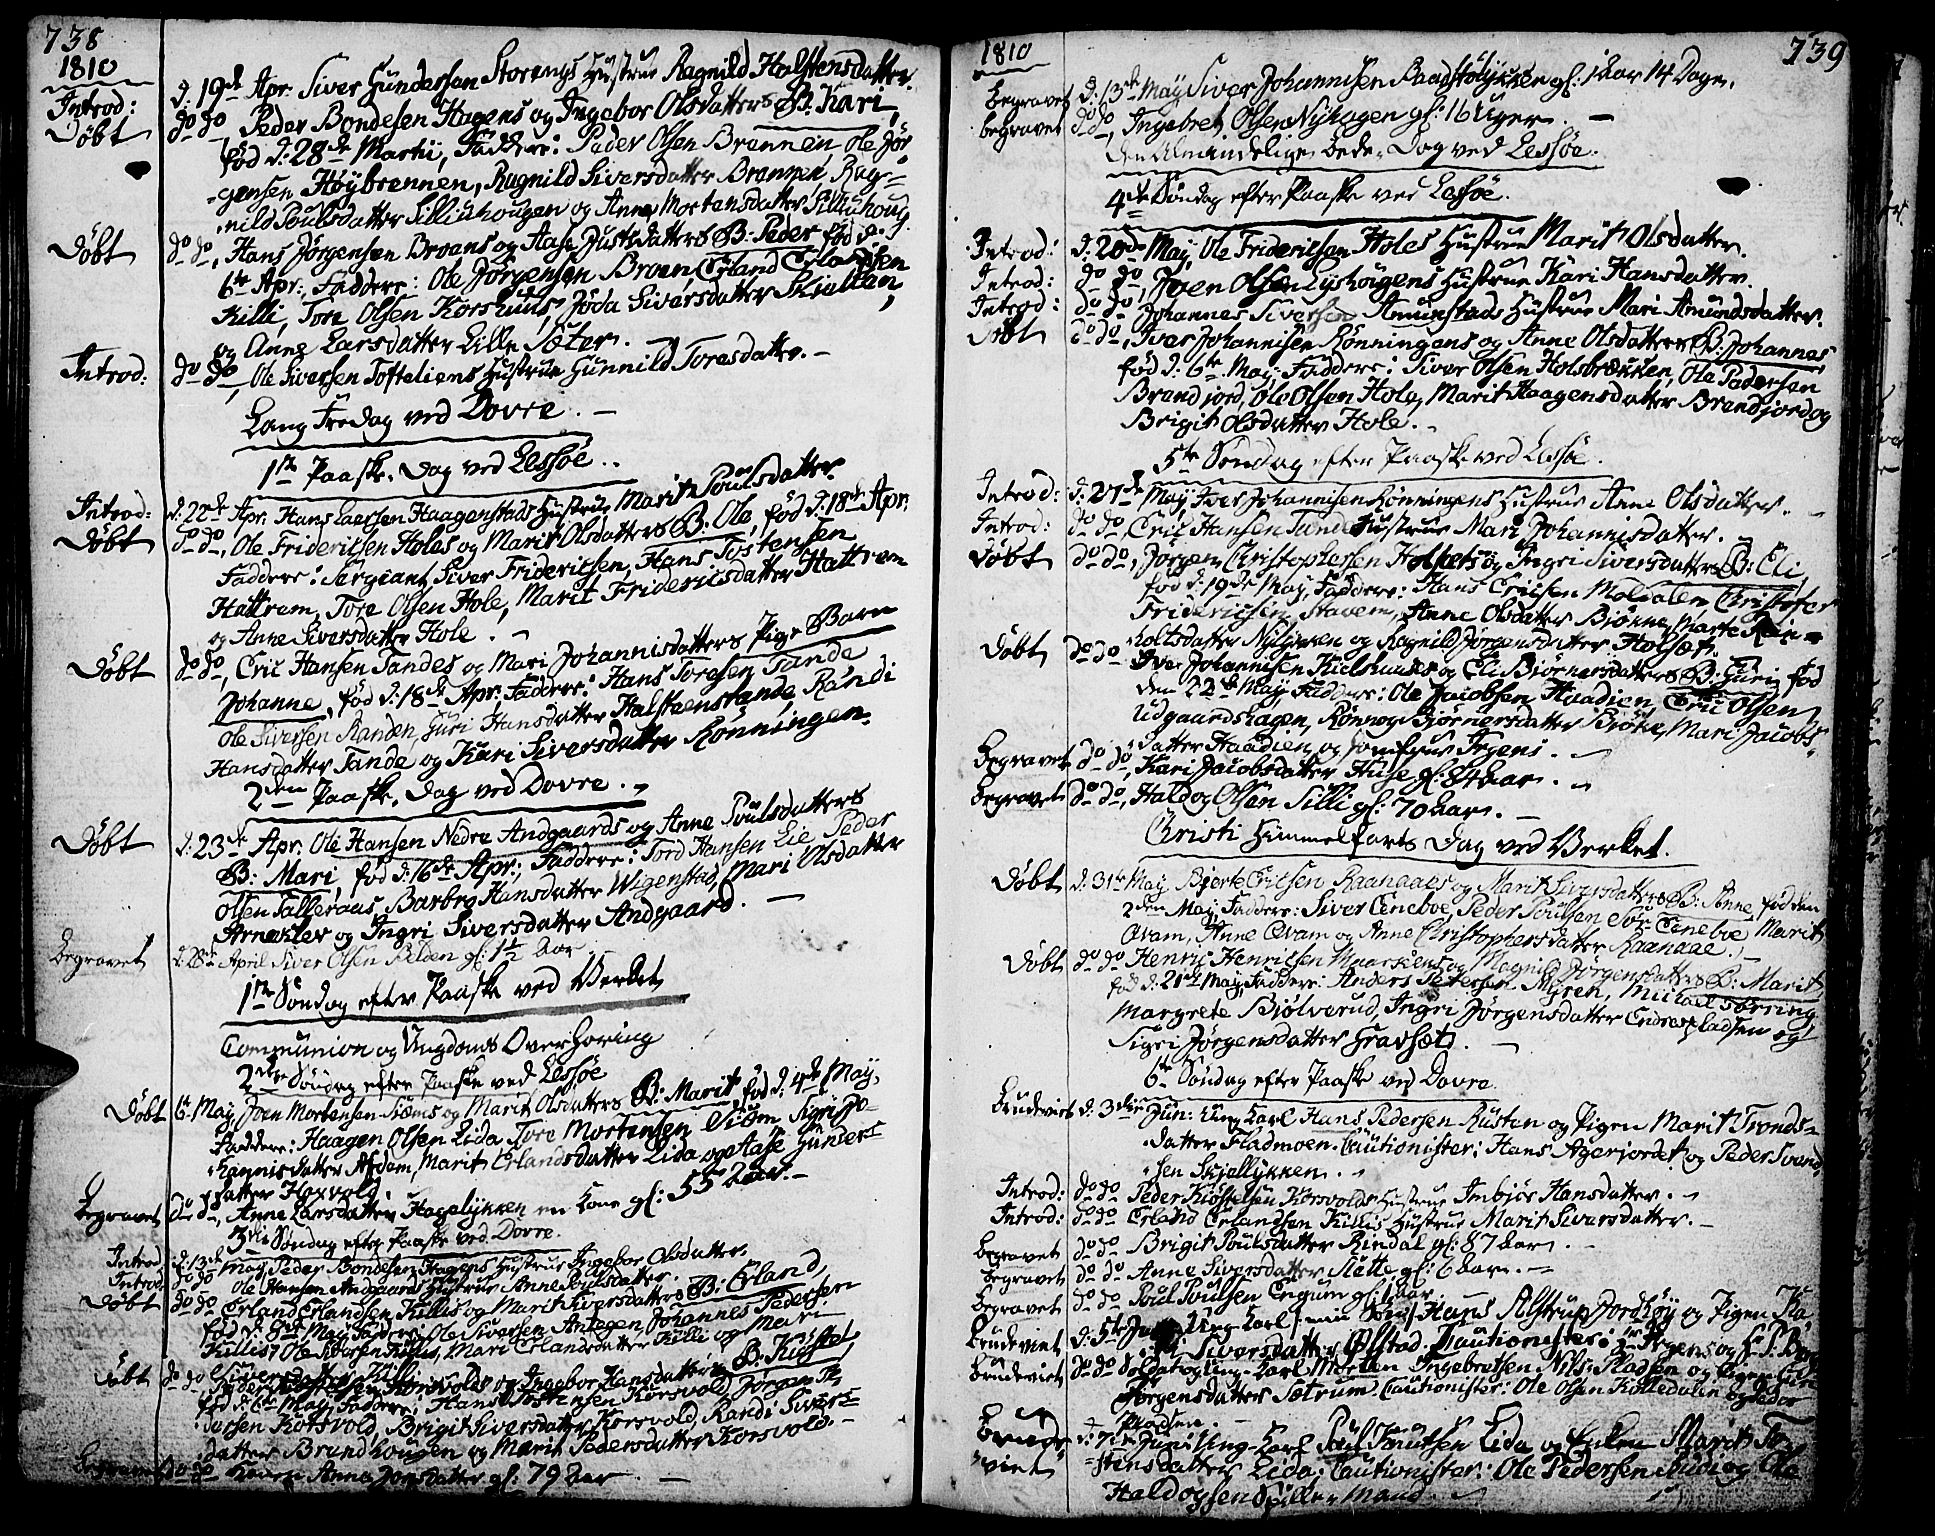 738
1810
Introd: d: 19de Apr. Siver Gundersen Storengs Hustrue Ragnild Halstensdatter.
Døbt do do, Peder Bondesen Hagens og Ingebor Olsdatters B. Kari,
fød d: 28de Martii, Faddere: Peder Olsen Brennen, Ole Jør-
gensen Høybrennen, Ragnild Siversdatter Brennen, Rag-
nild Poulsdatter Silliuhougen og Anne Mortensdatter Silliuhoug.
Døbt do do, Hans Jørgensen Broens og Aase Justsdatters B: Peder fød d:
6te Apr: Faddere: Ole Jørgensen Broen, Erland Erlandsen
Killi, Tore Olsen Korshuus, Jøda Siversdatter Skjelten,
og Anne Larsdatter Lille Sæter.
Introd: do do, Ole Siversen Tofteliens Hustrue Gunnild Toresdatter.
Lang Fredag ved Dovre.
1ste Paaske-Dag ved Lessøe.
Introd: d: 22de Apr: Hans Larsen Haagenstads Hustrue Marit Poulsdatter
Døbt do do, Ole Fridericsen Holes og Marit Olsdatters B: Ole, fød d: 18de Apr:
Faddere: Sergiant Siver Fridericsen, Hans Tostensen
Hattrem, Tore Olsen Hole, Marit Fridericsdatter Hattrem
og Anne Siversdatter Hole.
Døbt do do, Eric Hansen Tandes og Mari Johannisdatters Pige Barn
Johanne, fød d: 18de Apr: Faddere: Hans Toresen Tande
Ole Siversen Randen, Guri Hansdatter Halsteenstande, Randi
Hansdatter Tande og Kari Siversdatter Rønningen.
2den Paaske-Dag ved Dovre.
Døbt d: 23de Apr. Ole Hansen Nedre Andgaards og Anne Poulsdatters
B: Mari, fød d: 16de Apr: Faddere: Tord Hansen Lie, Peder
Olsen Talleraas, Barbro Hansdatter Wigenstad, Mari Olsdatter
Arneklev og Ingri Siversdatter Andgaard.
Begravet d: 28de April Siver Olsen gl: 1½ Aar
1ste Søndag efter Paaske ved Verket
Communion og Ungdoms Overhøring
2den Søndag efter Paaske ved Lessøe
Døbt 6te May, Joen Mortensen Siøms og Marit Olsdatters B: Marit, fød d: 4de May,
Faddere: Haagen Olsen Lida, Tore Mortensen Siøm, Sigri Jo-
hannisdatter Afdem, Marit Erlandsdatter Lida og Aase Gunders-
datter Horvold.
Begravet do do, Anne Larsdatter Hagelykken en Kone gl: 55 Aar.
3die Søndag efter Paaske ved Dovre.
Introd d: 13de May, Peder Bondesen Hagens Hustrue Ingebor Olsdatter.
Introd do do Ole Hansen Andgaards Hustrue Anne Poulsdatter.
Døbt do do Erland Erlandsen Killis og Marit Siversdatters B: Erland,
fød d: 8de May, Faddere: Ole Siversen Antegen, Johannes Pedersen
Killis, Ole Siversen Killis, Mari Erlandsdatter Killi og Mari
Siversdatter Killi
Døbt do do Peder Kiøstelsen Korsvolds og Ingebor Hansdatters B. Kiøstel,
fød d: 6te May, Faddere: Hans Kiøstelsen Korsvold, Jørgen Pe-
dersen Korsvold, Brigit Siversdatter Korsvold, Randi Sivers-
datter Brandhougen og Marit Pedersdatter Korsvold.
Begravet do do Anne Jonsdatter gl: 79 Aar.
1810
739
Begravet d: 13de May, Siver Johannisen Baadstølykken gl: 1 Aar 14 Dage.
Begravet do do, Ingebret Olsen Nyhagen gl: 16 Uger.
Den Almindelige Bede-Dag ved Lessøe.
4de Søndag efter Paaske ved Lessøe.
Introd: d: 20de May, Ole Fridericsen Holes Hustrue Marit Olsdatter.
Introd: do do, Joen Olsen Lyshougens Hustrue Kari Hansdatter.
Introd: do do, Johannes Siversen Amunstads Hustrue Mari Amundsdatter.
Døbt do do, Iver Johannisen Rønningens og Anne Olsdatters B: Johannes,
fød d: 6te May, Faddere: Siver Olsen Holsbrækken, Ole Pedersen
Brandjord, Ole Olsen Hole, Marit Haagensdatter Brandjord og
Brigit Olsdatter Hole.
5te Søndag efter Paaske ved Lessøe.
Introd: d: 27de May, Iver Johannisen Rønningens Hustrue Anne Olsdatter.
Introd: do do, Eric Hansen Tandes Hustrue Mari Johannisdatter.
Døbt do do, Jørgen Christophersen Holsets og Ingri Siversdatters B: Eli,
fød d: 19de May, Faddere: Hans Ericsen Moldalen, Christofer
Fridericsen Stavem, Anne Olsdatter Bjønne, Marte Rein-
holtsdatter Nylykken og Ragnild Jørgensdatter Holsæt.
Døbt do do Iver Johannisen Kiilhuses og Eli Bjørnersdatters B: Guri, fød
den 22de May, Faddere: Ole Jacobsen Haadien, Eric Olsen
Udgaardshagen, Rønnog Bjørnersdatter Bjøke, Mari Jacobs-
datter Haadien, og Jomfrue Irgens.
Begravet do do, Kari Jacobsdatter Huse gl: 84 Aar.
Begravet do do, Haldog Olsen Silli gl: 70 Aar.
Christi Himmelfarts Dag ved Verket.
Døbt d: 31te May Bjerte Ericsen Raanaaes og Marit Siversdatters B: Anne, fød den
2den May, Faddere: Siver Eneboe, Peder Poulsen Eneboe, Marit
Qvam, Anne Qvam og Anne Christophersdatter Raanaae.
Døbt do do Henric Henricsen Maarstens og Magnild Jørgensdatters B: Marit,
fød d: 21de May, Faddere: Anders Petersen Myren, Michael Børring,
Margrete Bjølverud, Ingri Jørgensdatter Endrespladsen og
Sigri Jørgensdatter Gravset.
6te Søndag efter Paaske ved Dovre.
Brudeviet d: 3die Jun: Ung Karl Hans Pedersen Rusten og Pigen Marit Tronds-
datter Fladmoen. Cautionister: Hans Agerjordet og Peder Svend-
sen Skjellykken.
Introd: do do Peder Kiøstelsen Korsvolds Hustrue Imbjør Hansdatter.
Introd: do do Erland Erlandsen Killis Hustrue Marit Siversdatter.
Begravet do do Brigit Poulsdatter Rindal gl: 87 Aar.
Begravet do do Anne Siversdatter Slette gl: 6 Aar.
Begravet do do Poul Poulsen Engum gl: 1 Aar.
Brudeviet d: 5te Ung Karl, min Søn, Hans Alstrup Jordhøy og Pigen
Siversdatter Ølstad. Cautionister: Hr Irgens og
Brudeviet do do Soldat og Ung-Karl Morten Ingebretsen Nils-Pladsen og Pigen
Jørgensdatter Sætrum. Cautionister: Ole Olsen Kolledalen og Peder
Pladsen.
Brude- d: 7de Junii Ung-Karl Poul Knutsen Lida og Enken Marit To-
viet stensdatter Lida; Cautionister: Ole Pedersen og Ole
Haldogsen Spillemand.